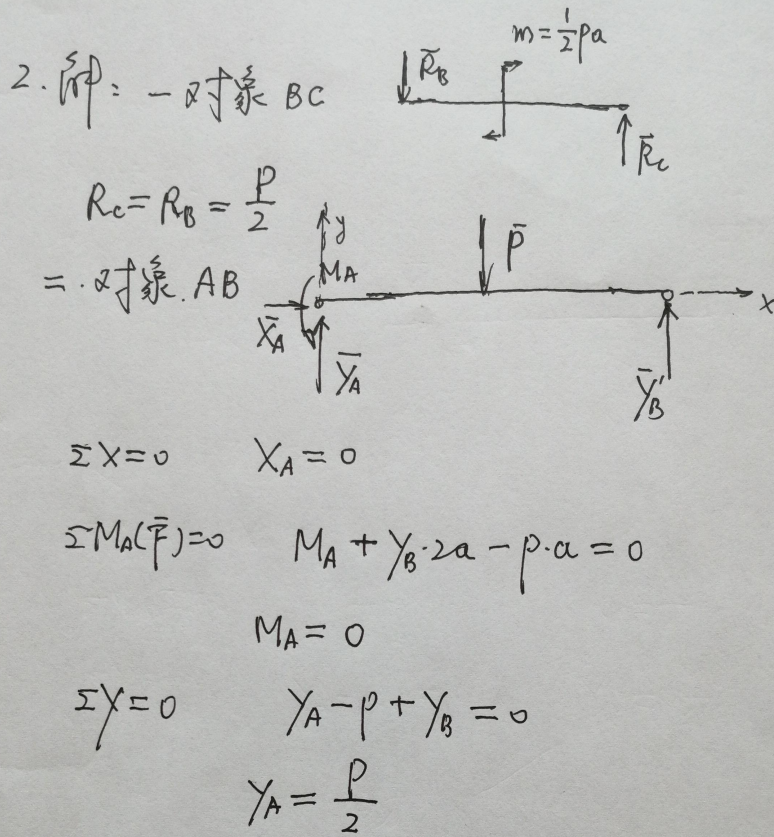 2. 解: 一 对象 BC
R̄_B
m = 1/2 pa
R̄_C
R_C = R_B = P/2
二. 对象. AB
y
M_A
P̄
X̄_A
Ȳ_A
Ȳ_B'
x
ΣX = 0 X_A = 0
ΣM_A(F̄) = 0 M_A + Y_B·2a − p·a = 0
M_A = 0
ΣY = 0 Y_A − P + Y_B = 0
Y_A = P/2